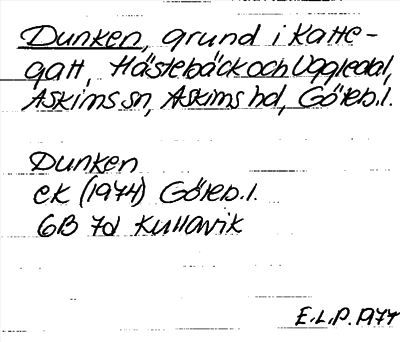 Dunken, grund i Katte-
gatt, Hästebäck och Uggledal,
Askims sn, Askims hd, Göteb.l.
Dunken
ek (1974) Göteb.l.
6B 7d Kullavik
E.L.P. 1977